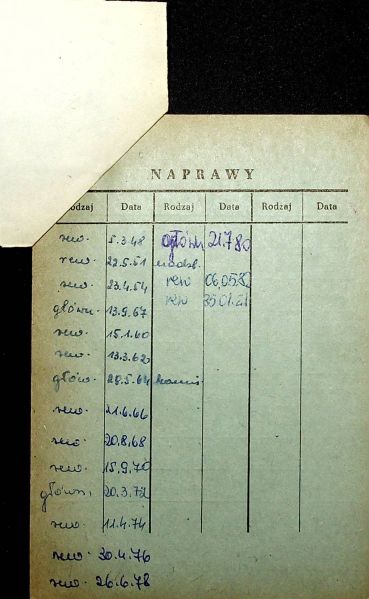 NAPRAWY
Rodzaj Data Rodzaj Data Rodzaj Data
rew. 5.3.48 główn 21.7.80
rew. 22.5.51 nadzl.
rew. 23.4.54 rew 06.05.82
główn. 13.9.57 rew
rew. 15.1.60
rew. 13.3.62
główn. 28.5.64
rew. 21.6.66
rew. 20.8.68
rew. 15.9.70
główn. 20.3.72
rew. 11.4.74
rew. 30.4.76
rew. 26.6.78